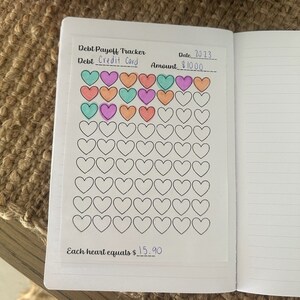 Debt Payoff Tracker
Date 2023
Debt Credit Card Amount $1000
Each heart equals $15.90